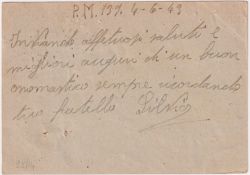 P.M. 139. 4-6-43
Inviandoti affettuosi saluti e
migliori auguri di un buon
onomastico sempre ricordando
tuo fratello Silvio